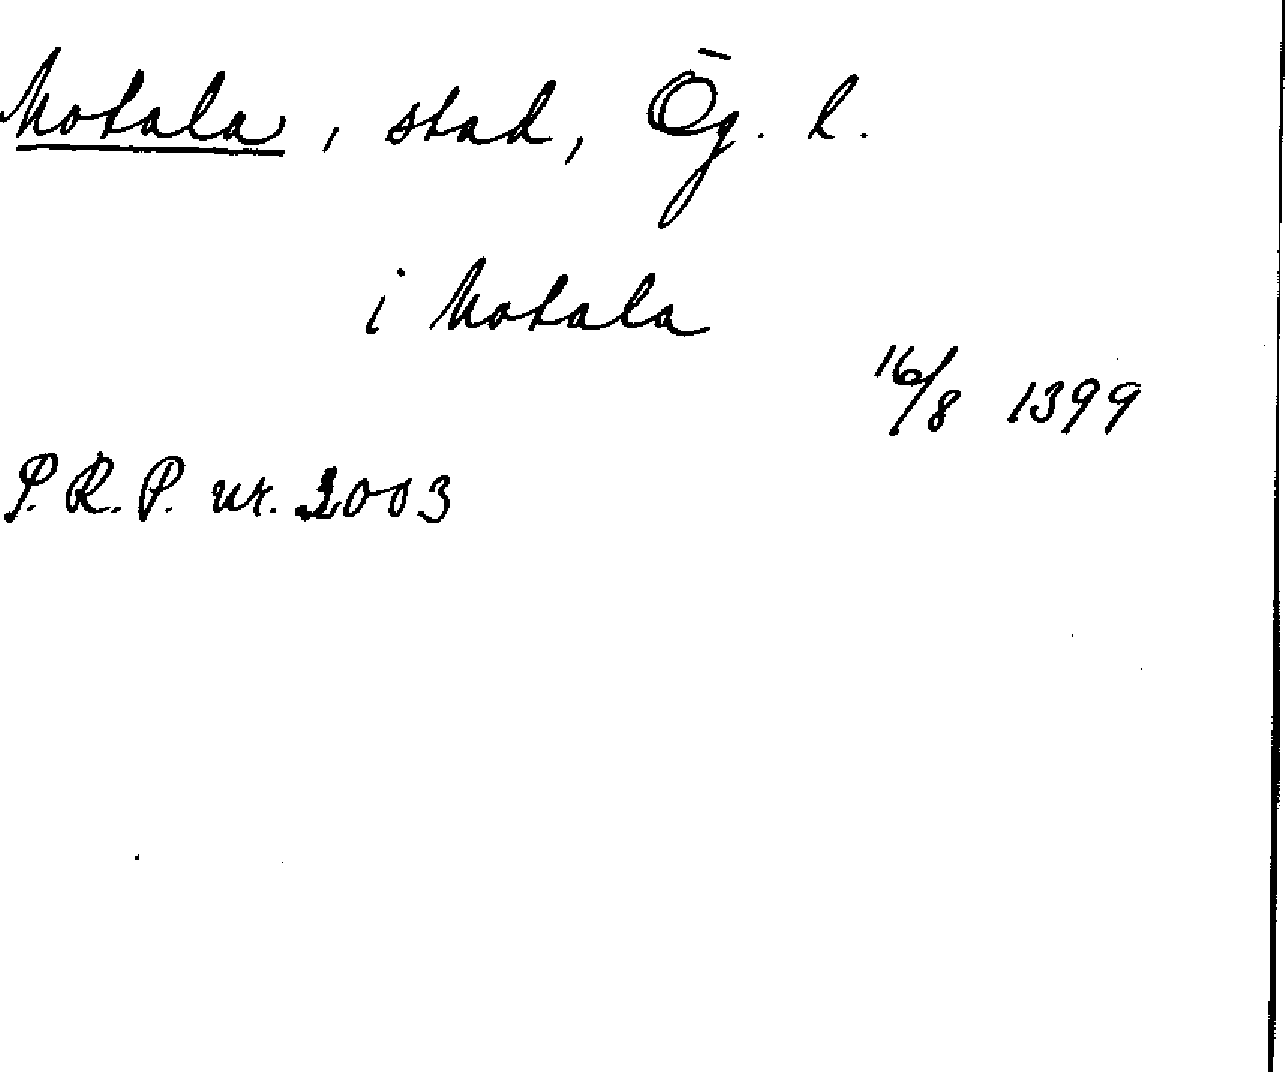 Motala, stad, Ög. l.
i Motala
16/8 1399
P.R.P. nr. 2003